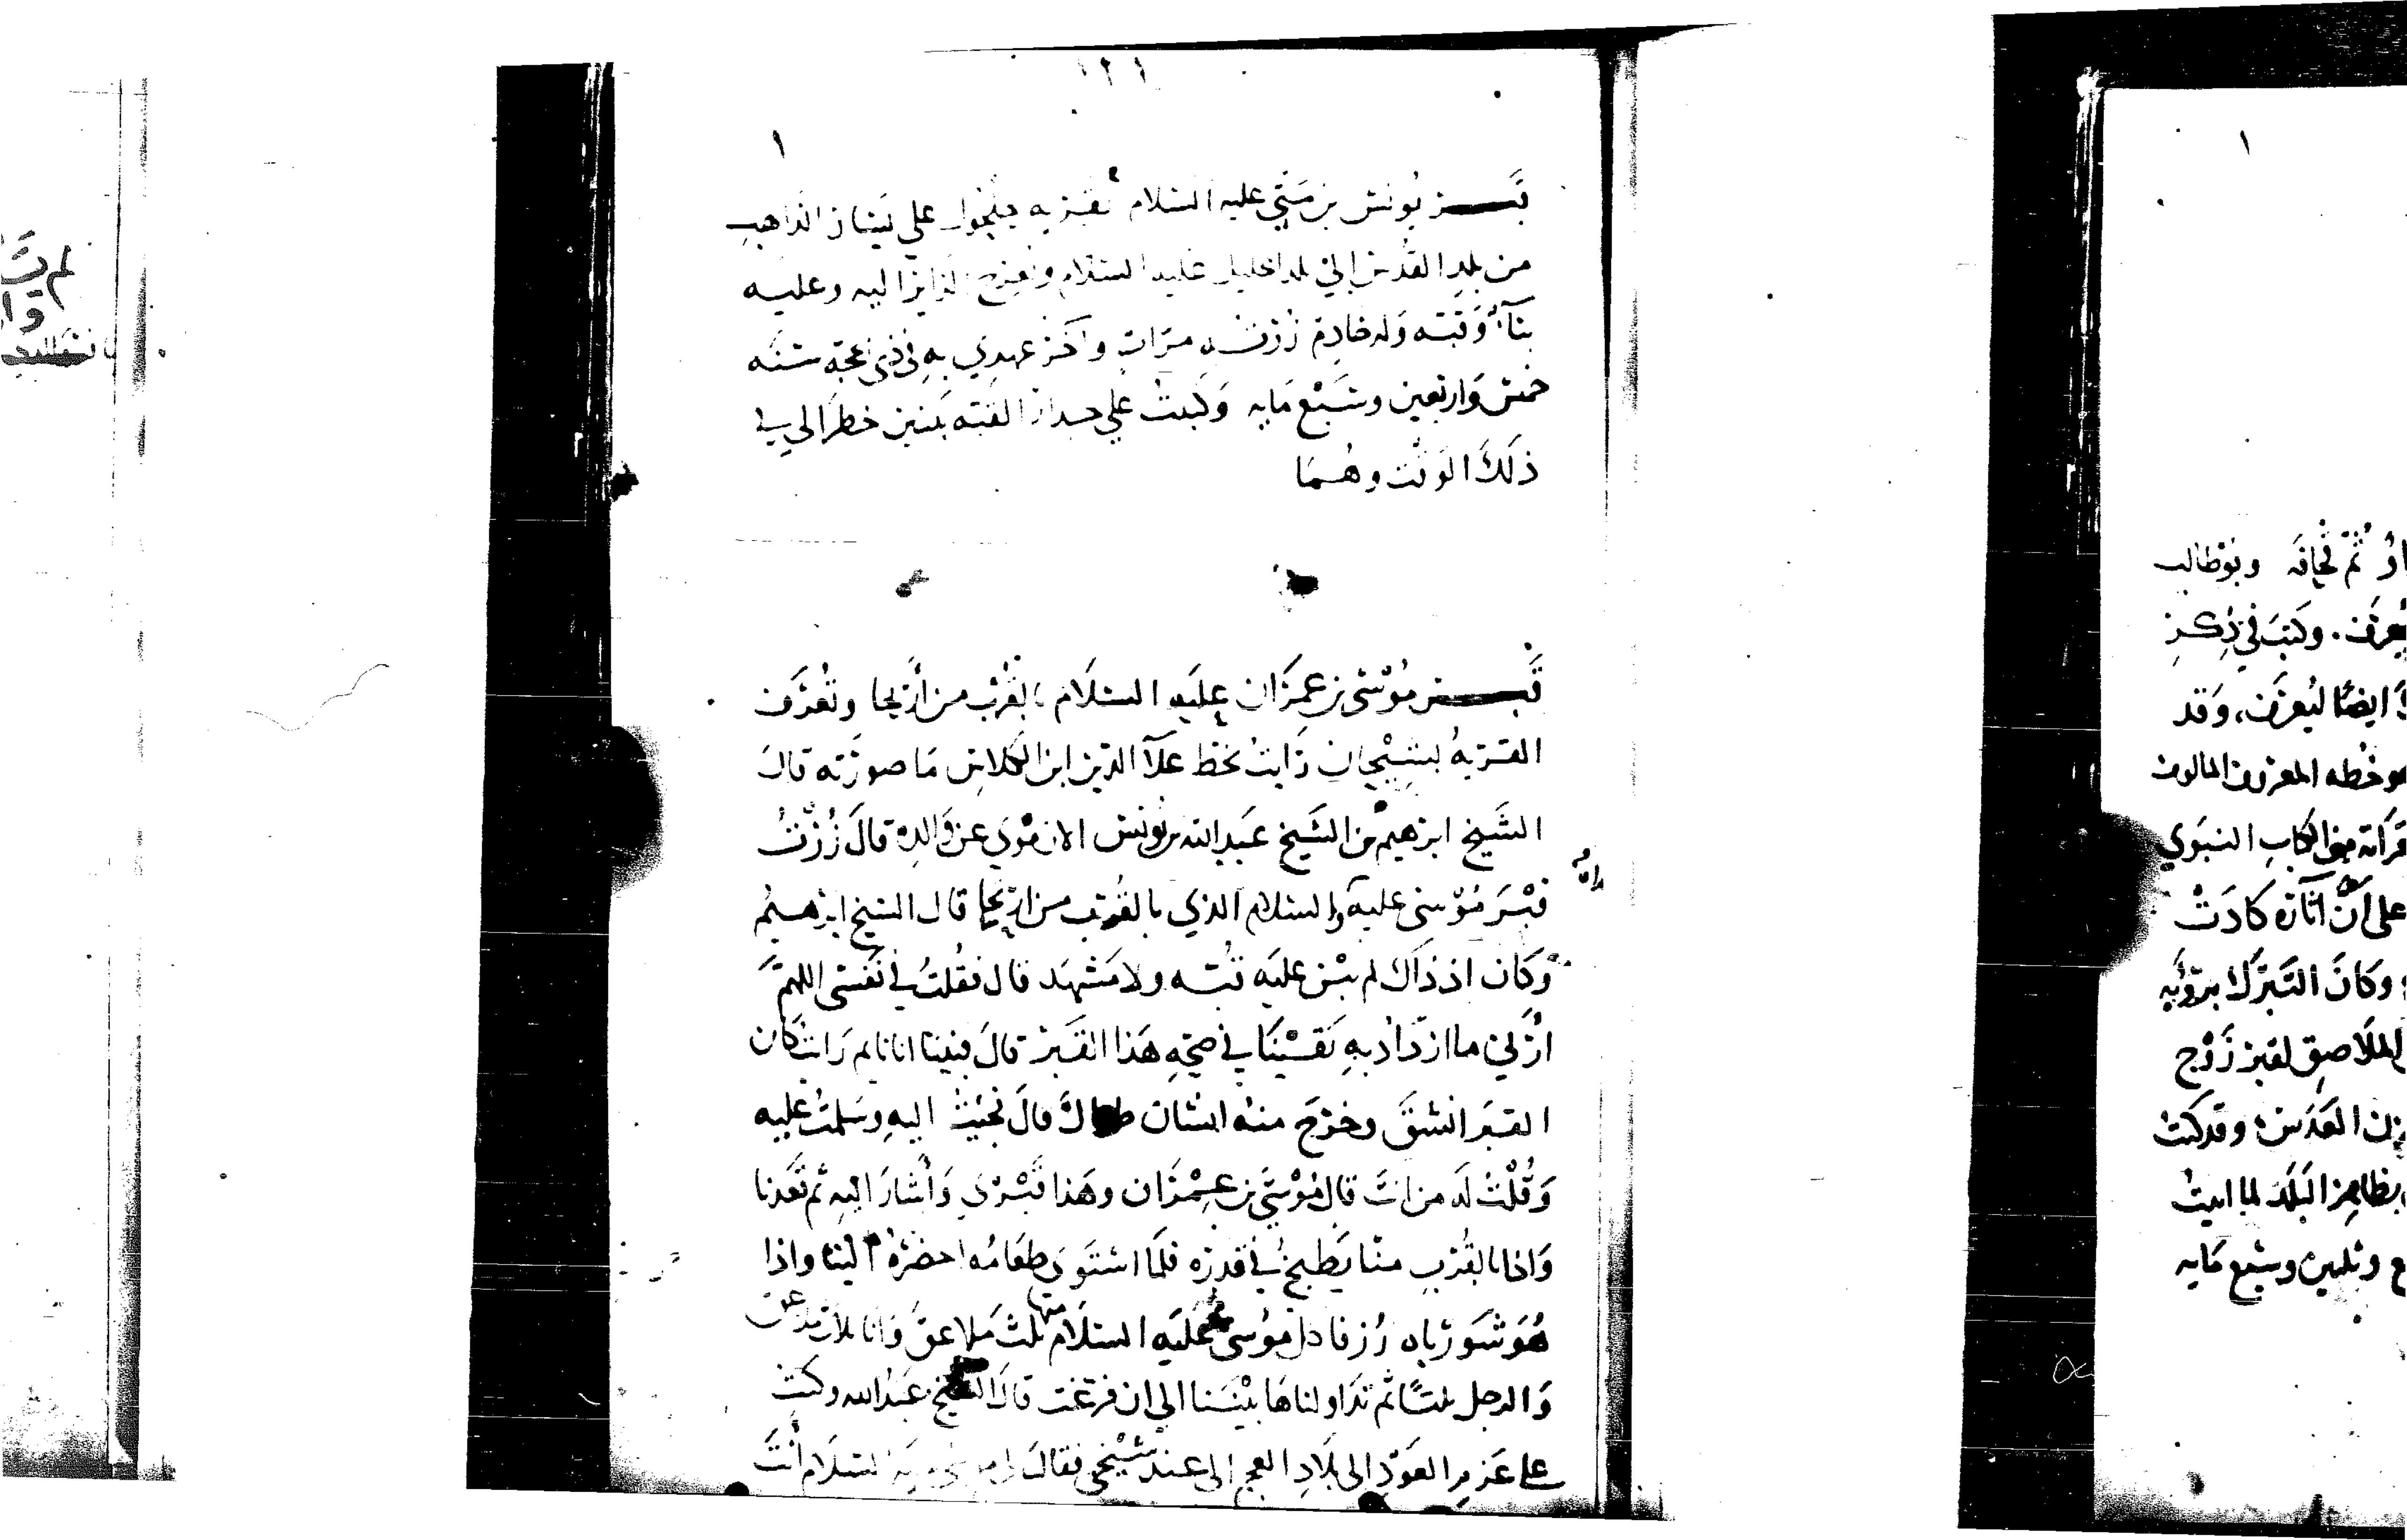 ١٢١
١
قبر يونس بن متى عليه السلام بقرية حلحول على يسار الذاهب
من بلد القدس الى بلد الخليل عليه السلام ويعرج الزاير اليه وعليه
بناء وقبه وله خادم زرته مرات واخر عهدي به في ذي الحجة سنه
خمس واربعين وسبع مايه وكتبت على جدار القبه بيتين خطرا لي في
ذلك الوقت وهما
قبر موسى بن عمران عليه السلام بالقرب من اريحا وتعرف
القريه بشيحان رايت بخط علا الدين ابن الكلاس ما صورته قال
الشيخ ابرهيم بن الشيخ عبد الله بن يونس الارموي عن والده قال زرت
قبر موسى عليه السلام الذي بالقرب من اريحا قال الشيخ ابرهيم
وكان اذ ذاك لم يبن عليه قبه ولا مشهد قال فقلت في نفسي اللهم
ارني ما ازداد به يقينا في صحة هذا القبر قال فبينا انا نايم رايت كان
القبر انشق وخرج منه انسان طوال قال فجيت اليه وسلمت عليه
وقلت له من انت قال موسى بن عمران وهذا قبري واشار اليه ثم قعدنا
واذا بالقرب منا يطبخ في قدره فلما استوى طعامه احضره الينا واذا
هو شورباه رز فاكل موسى عليه السلام منها ثلث ملاعق وانا ثلاث
والرجل ثلثا ثم تداولناها بيننا الى ان فرغت قال الشيخ عبد الله وكنت
على عزم العود الى بلاد العجم الى عند شيخي فقال لي موسى عليه السلام انت
١
ثم قحافه وبوطالب
يعرف . وكتب في ذكر
ايضا ليعرف، وقد
خطه المعروف المالوف
الكتاب النبوي
على ان اثاره كادت
وكان التبرك برويه
الملاصق لقبر زوج
القدس وقد كنت
بظاهر البلد لما اتيت
وثلثين وسبع مايه